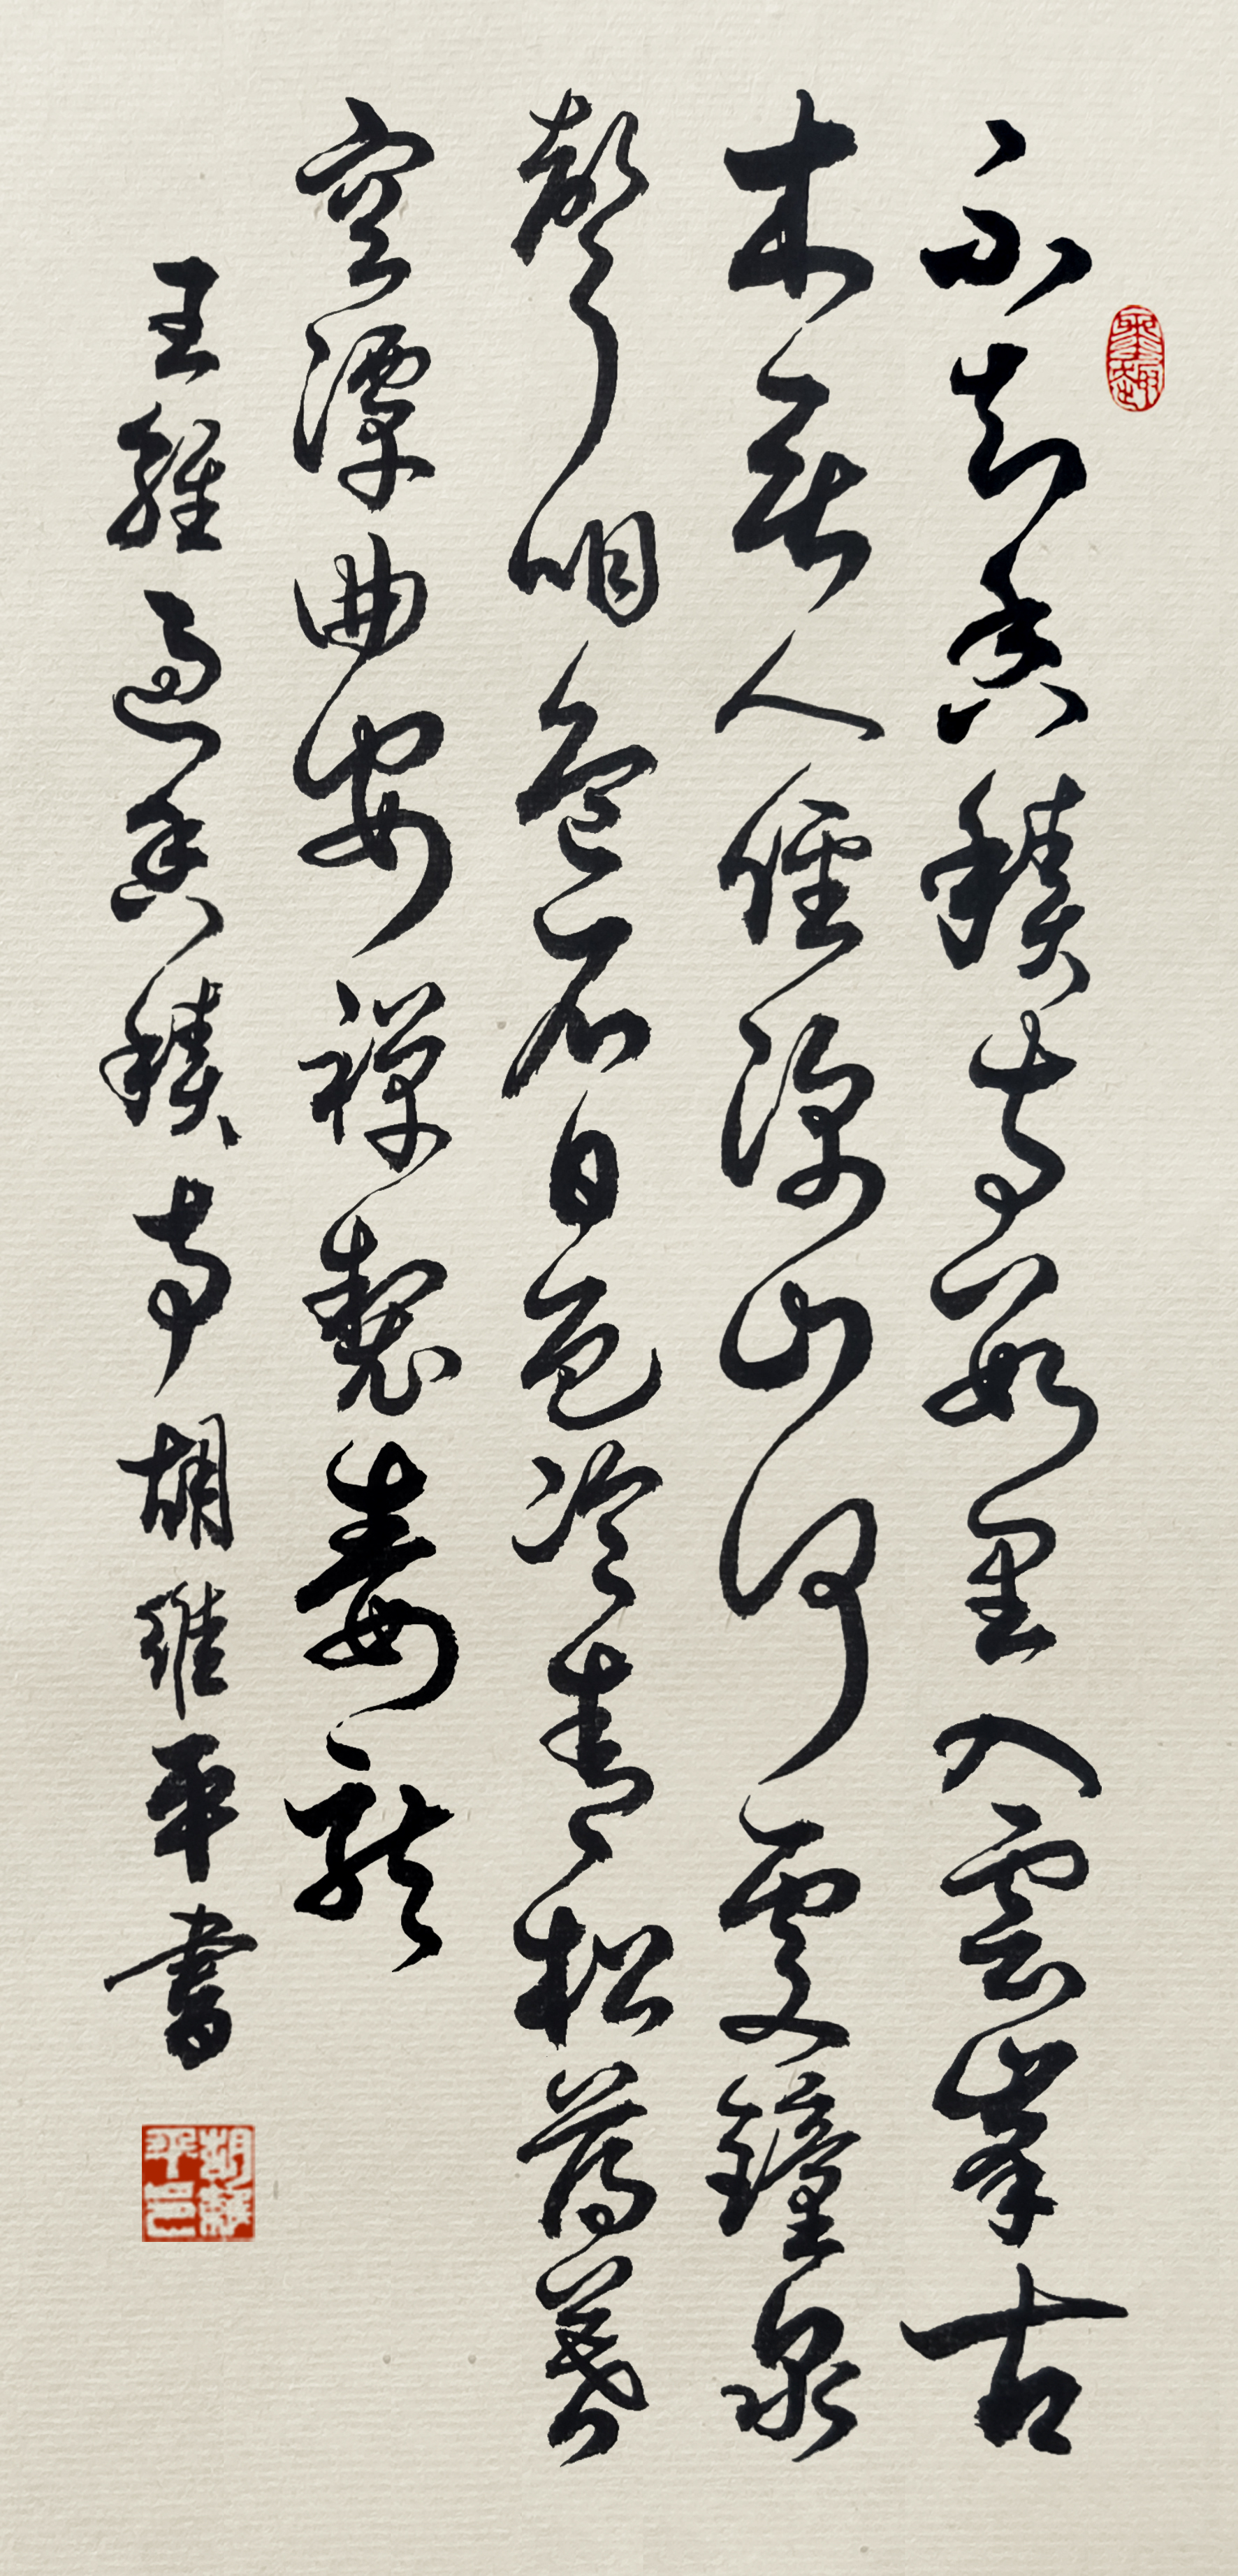 不知香積寺數里入雲峯古
木無人徑深山何處鐘泉
聲咽危石日色冷青松薄暮
空潭曲安禪製毒龍
王維過香積寺胡維平書
胡維平印